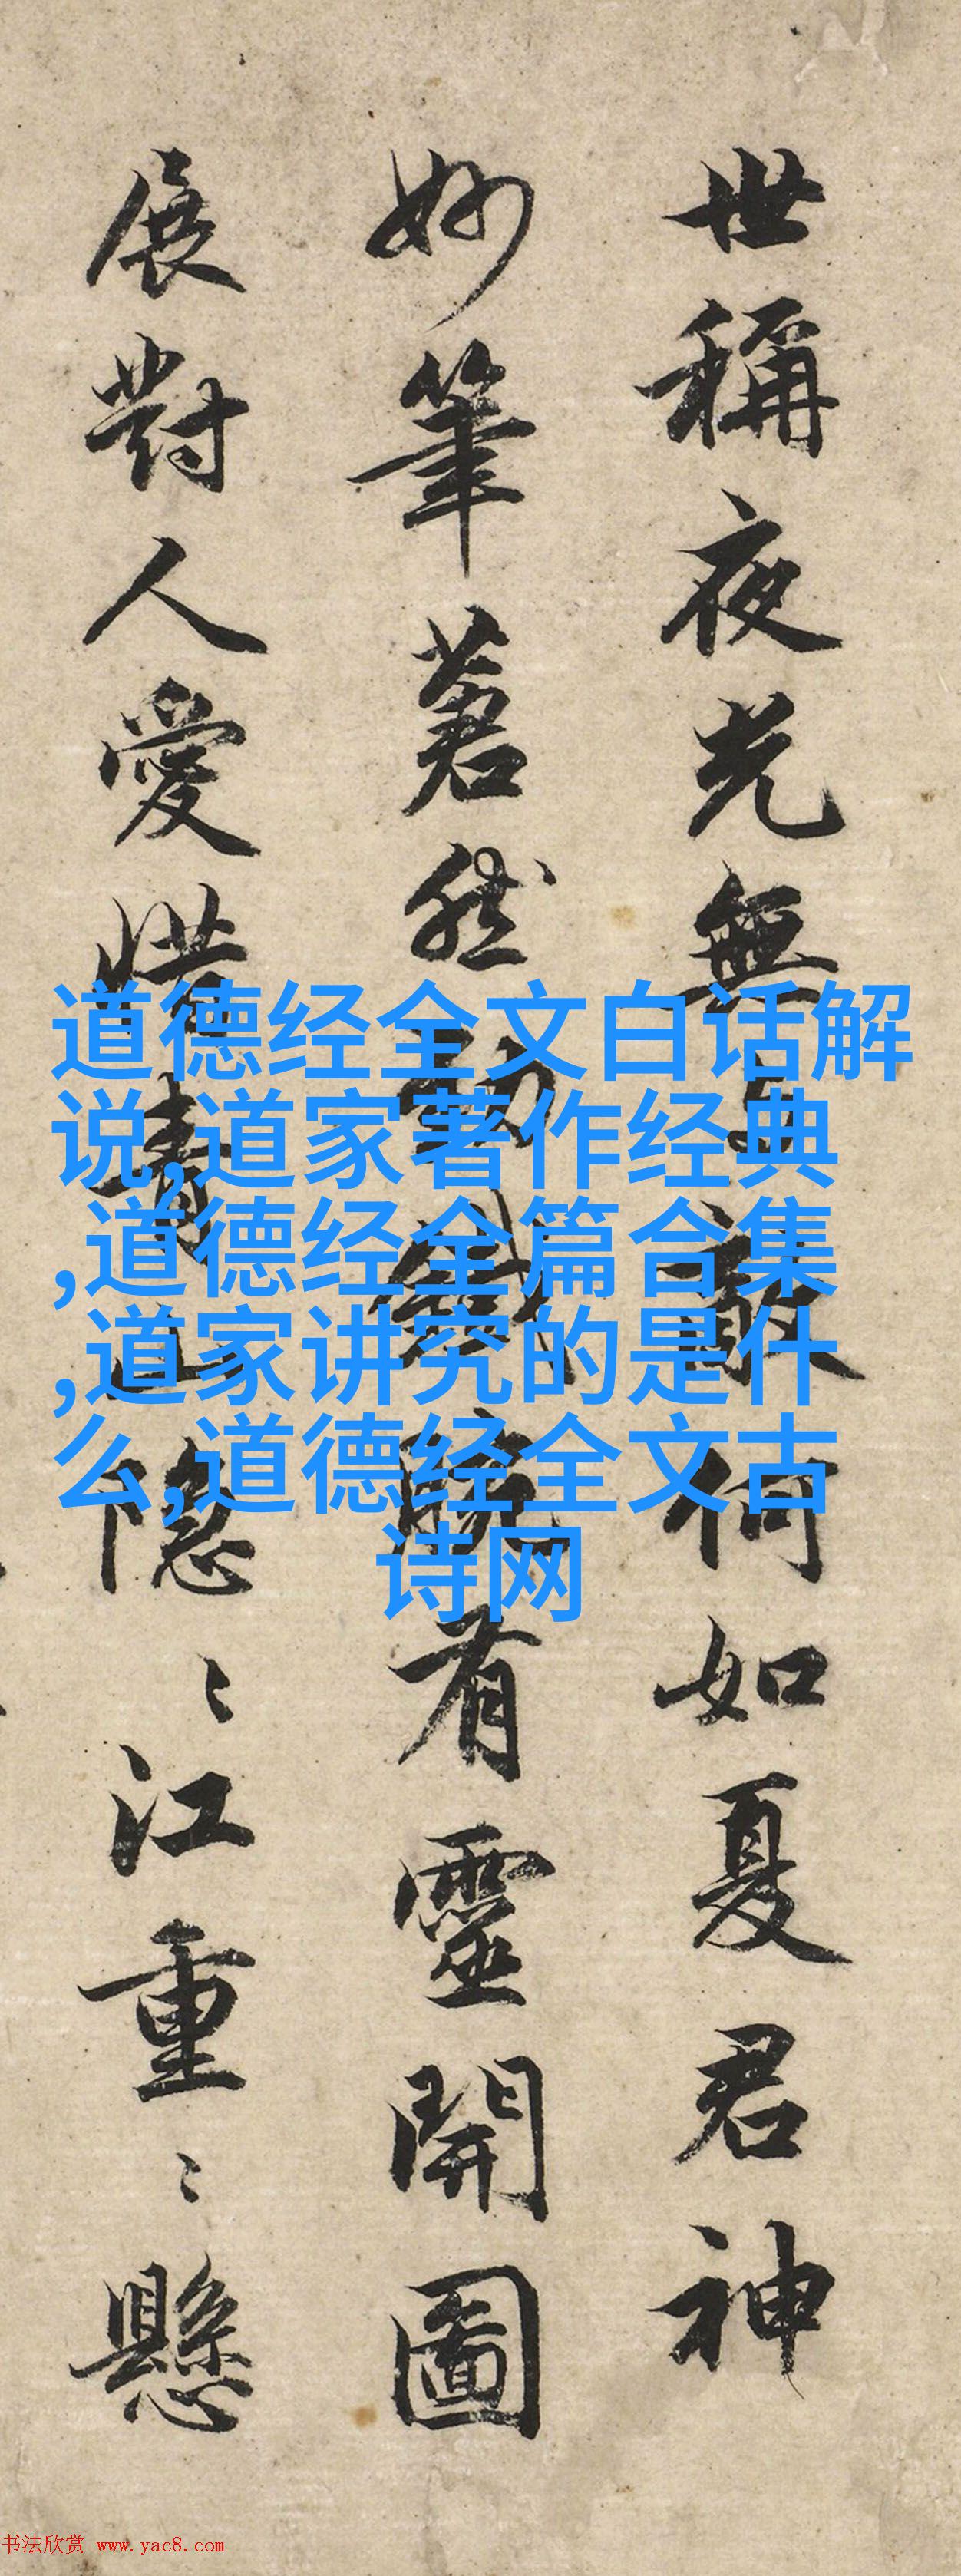 世稱夜光無與敵何如夏君神
妙筆著然動鬼
有靈開圖
展對人愛
隱〻江重〻懸
道德经全文白话解
说,道家著作经典
,道德经全篇合集
,道家讲究的是什
么,道德经全文古
诗网
书法欣赏 www.yac8.com